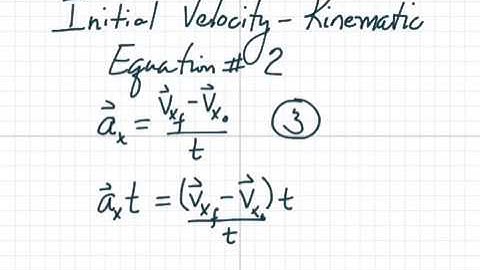 Initial Velocity - Kinematic
Equation # 2
a⃗ₓ = (v⃗ₓf - v⃗ₓ₀) / t   ③
a⃗ₓt = (v⃗ₓf - v⃗ₓ₀)t / t